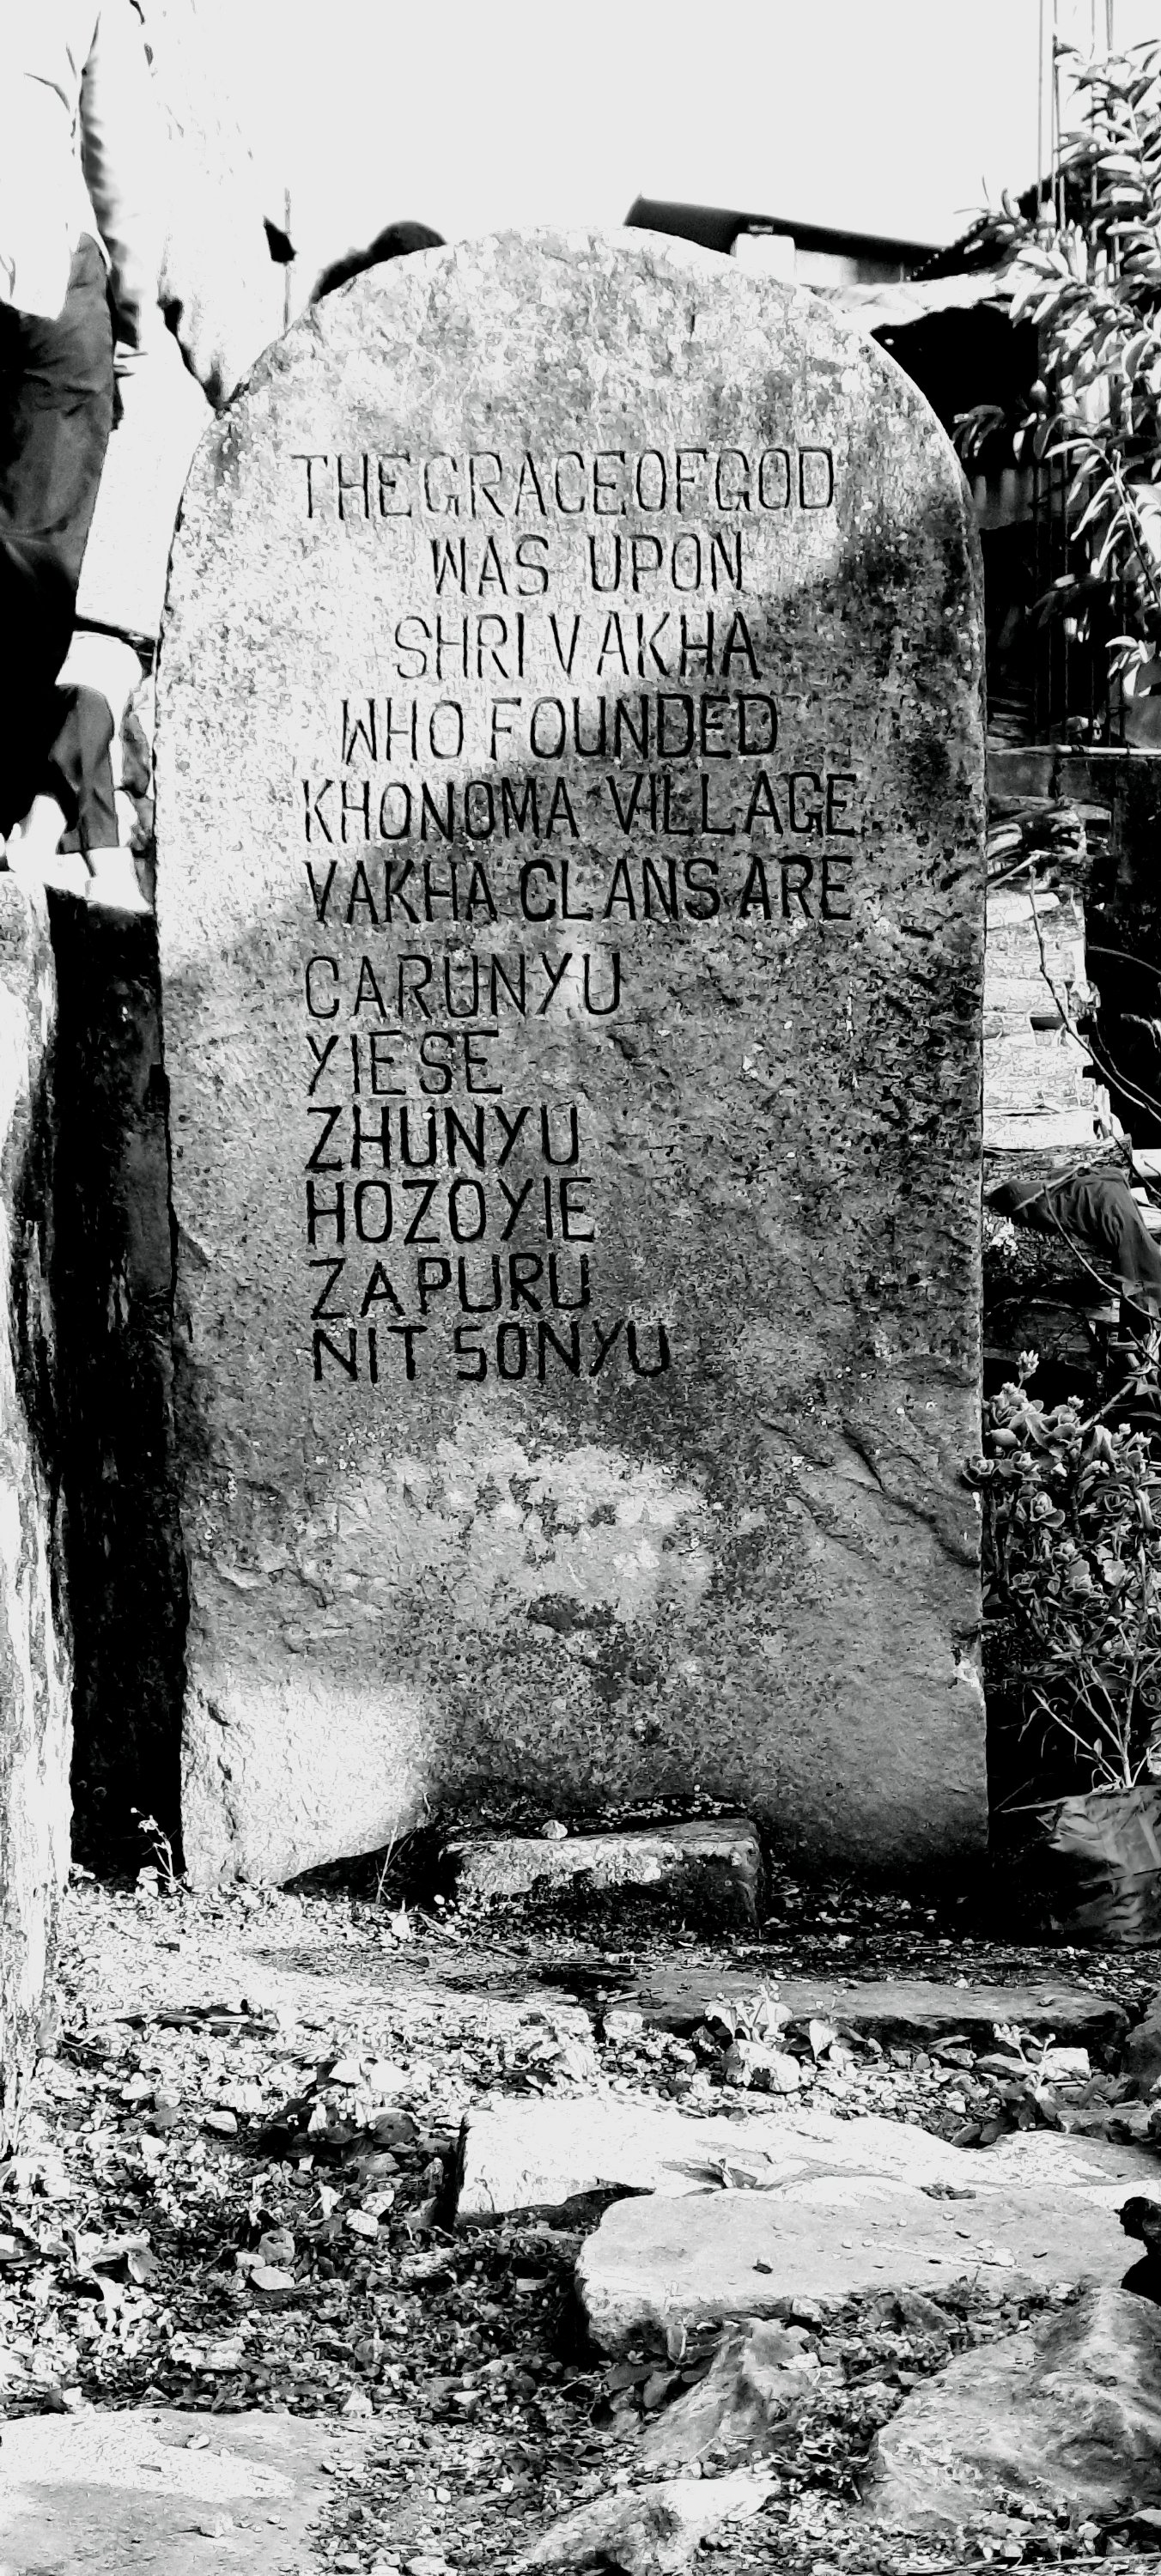 THE GRACE OF GOD
WAS UPON
SHRI VAKHA
WHO FOUNDED
KHONOMA VILLAGE
VAKHA CLANS ARE
CARUNYU
YIESE
ZHUNYU
HOZOYIE
ZAPURU
NITSONYU